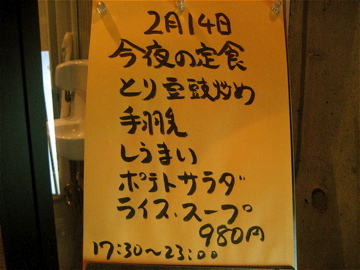 2月14日
今夜の定食
とり豆頭炒め
手羽先
しうまい
ポテトサラダ
ライス、スープ
980円
17:30〜23:00